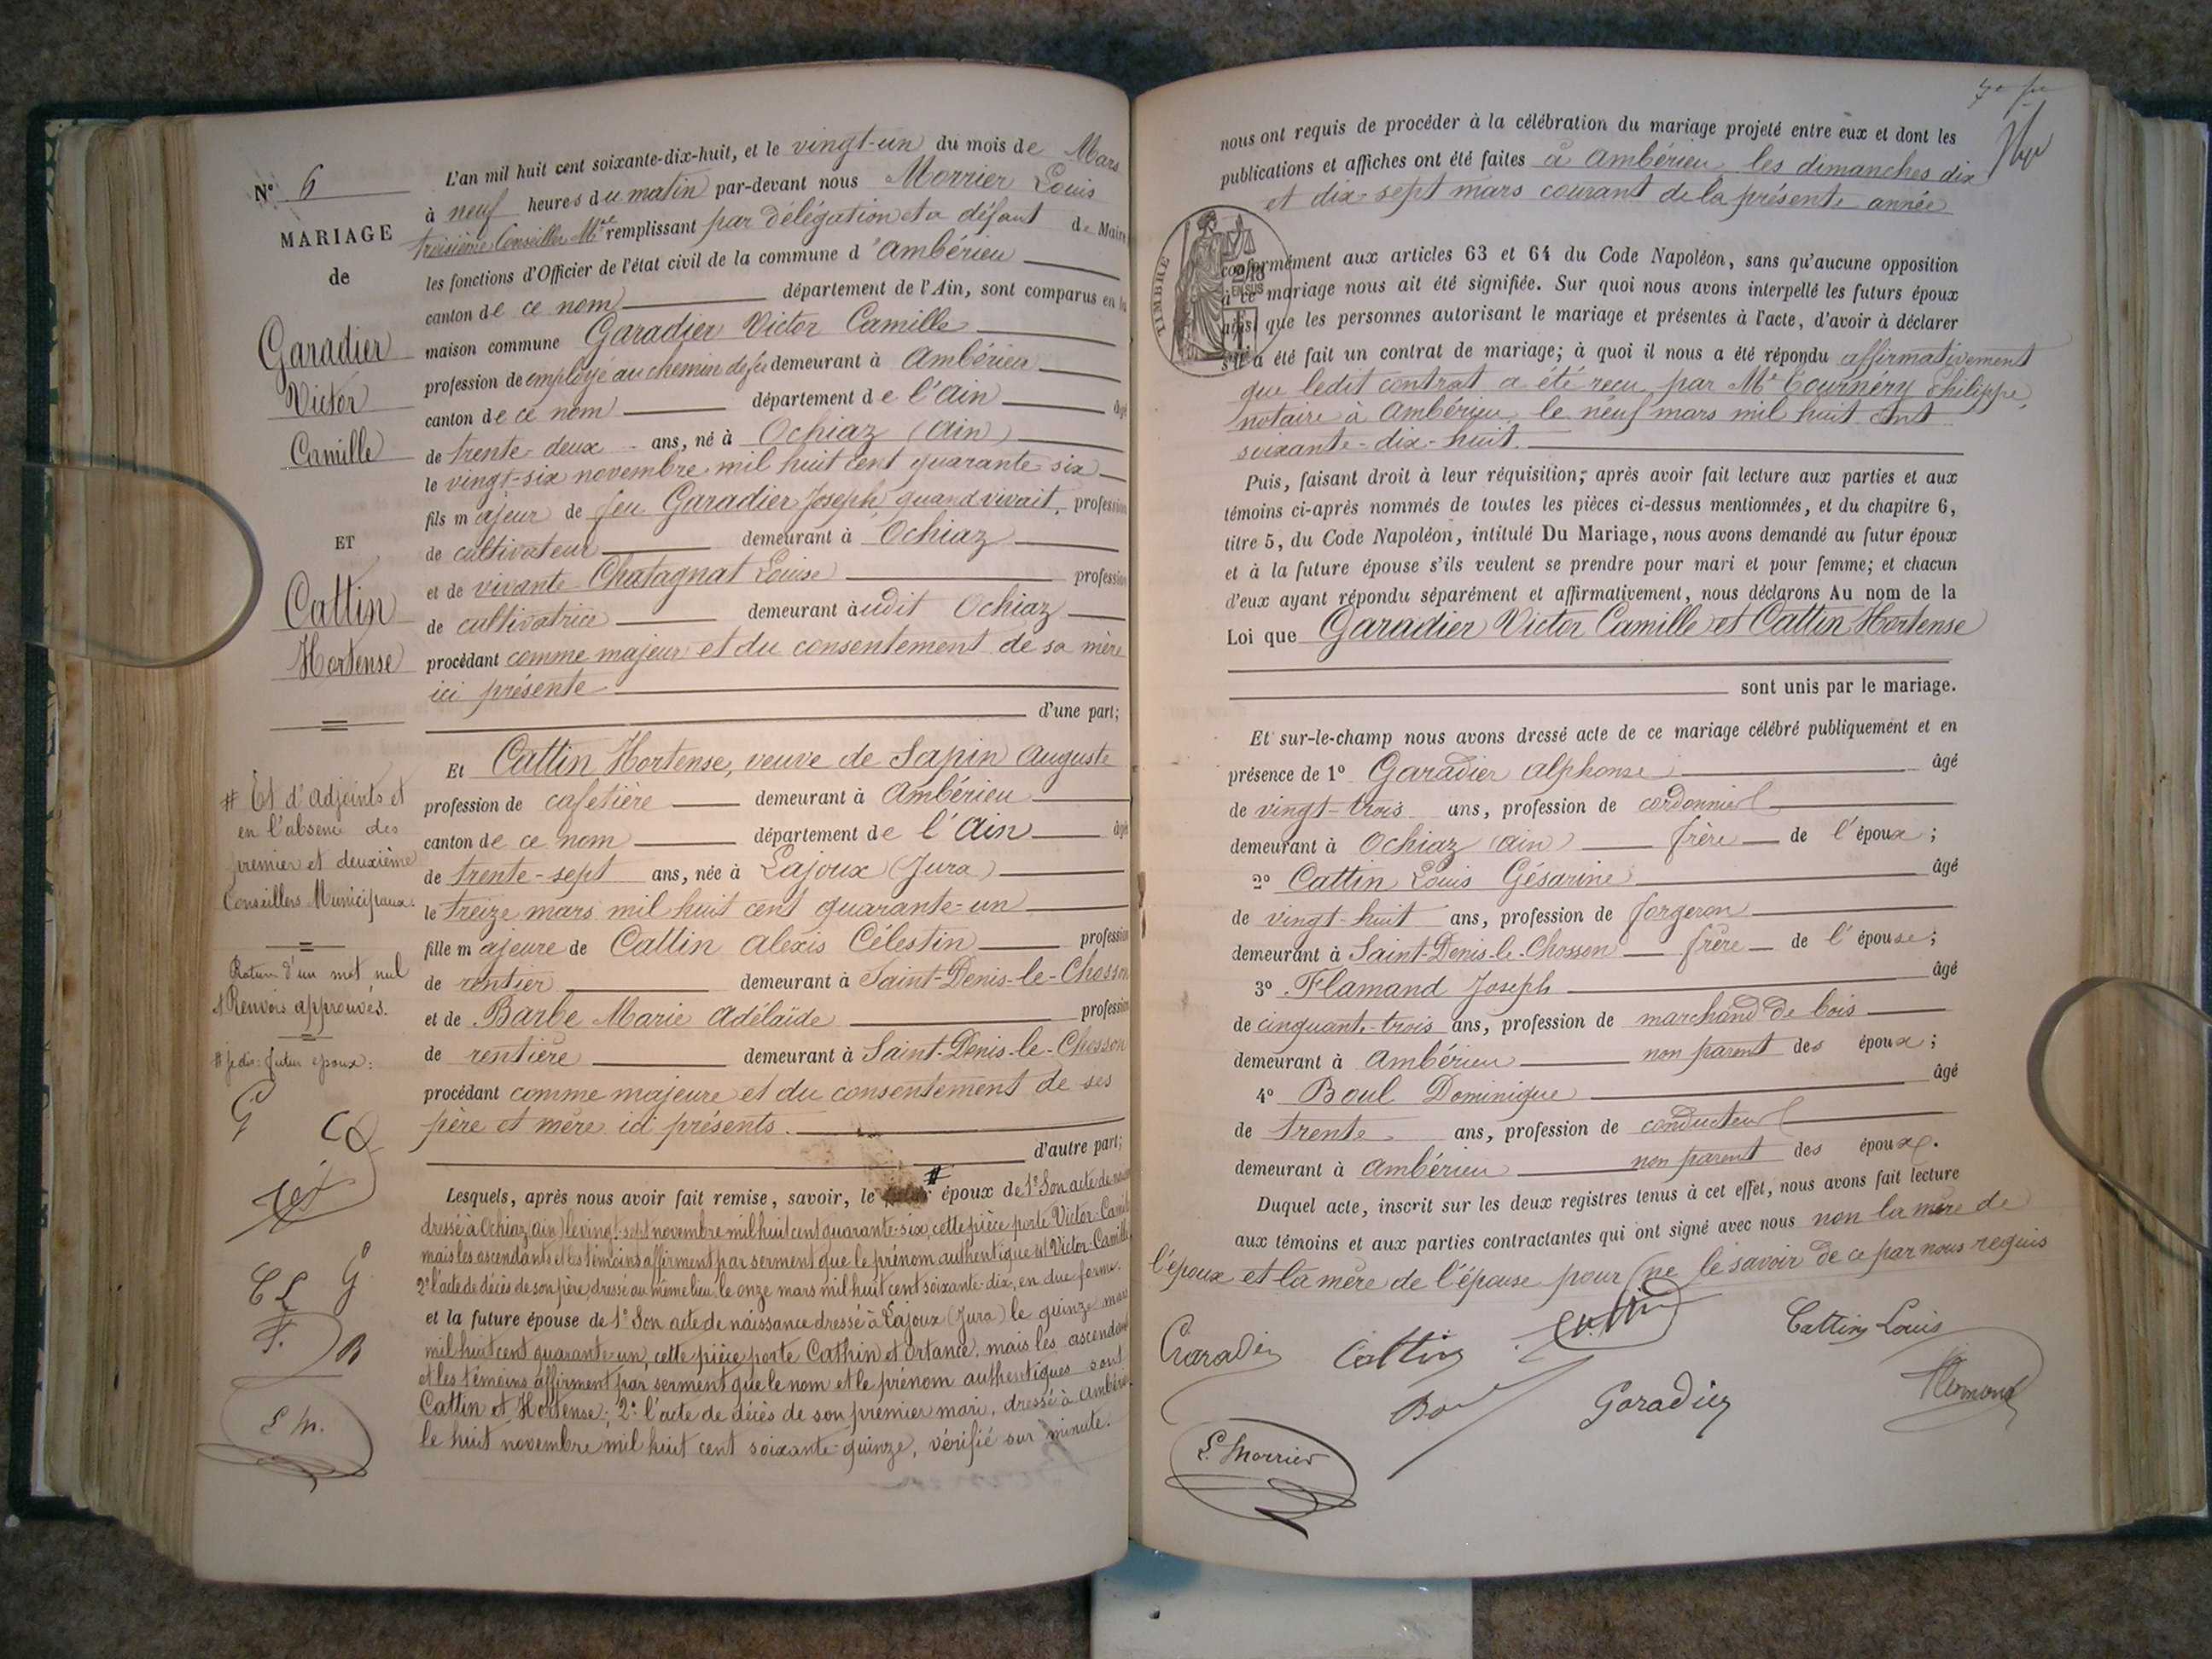 N° 6
MARIAGE
de
Garadier
Victor
Camille
ET
Cattin
Hortense
# Et d'adjoints et
en l'absence des
premier et deuxième
Conseillers Municipaux.
Rature d'un mot nul
Renvois approuvés.
# je dis: futur époux:
G
C L G
F. B
L M.
L'an mil huit cent soixante-dix-huit, et le vingt-un du mois de Mars
à neuf heures du matin par-devant nous Morrier Louis
troisième Conseiller Mal remplissant par délégation et a défaut de Maire
les fonctions d'Officier de l'état civil de la commune d'Ambérieu
canton de ce nom département de l'Ain, sont comparus en la
maison commune Garadier Victor Camille
profession de employé au chemin de fer demeurant à Ambérieu
canton de ce nom département de l'Ain âgé
de trente-deux ans, né à Ochiaz (Ain)
le vingt-six novembre mil huit cent quarante six
fils majeur de feu Garadier Joseph, quand vivait, profession
de cultivateur demeurant à Ochiaz
et de vivante Chatagnat Louise profession
de cultivatrice demeurant audit Ochiaz
procédant comme majeur et du consentement de sa mère
ici présente
d'une part;
Et Cattin Hortense, veuve de Sapin Auguste
profession de cafetière demeurant à Ambérieu
canton de ce nom département de l'Ain âgée
de trente-sept ans, née à Lajoux (Jura)
le treize mars mil huit cent quarante-un
fille majeure de Cattin Alexis Célestin profession
de rentier demeurant à Saint-Denis-le-Chosson
et de Barbe Marie Adélaïde profession
de rentière demeurant à Saint-Denis-le-Chosson
procédant comme majeure et du consentement de ses
père et mère ici présents.
d'autre part;
Lesquels, après nous avoir fait remise, savoir, le # époux de 1° Son acte de
dressé à Ochiaz (ain) le vingt-sept novembre mil huit cent quarante-six, cette pièce porte Victor-
mais les ascendants et les témoins affirment par serment que le prénom authentique est Victor-Camille
2° l'acte de décès de son père dressé au même lieu le onze mars mil huit cent soixante-dix, en due forme.
et la future épouse de 1° Son acte de naissance dressé à Lajoux (Jura) le quinze mars
mil huit cent quarante-un, cette pièce porte Cathin et Ortance, mais les ascendants
et les témoins affirment par serment que le nom et le prénom authentiques sont
Cattin et Hortense; 2° l'acte de décès de son premier mari, dressé à Ambérieu
le huit novembre mil huit cent soixante-quinze, vérifié sur minute.
nous ont requis de procéder à la célébration du mariage projeté entre eux et dont les
publications et affiches ont été faites à Ambérieu, les dimanches dix
et dix-sept mars courant de la présente année
TIMBRE
conformément aux articles 63 et 64 du Code Napoléon, sans qu'aucune opposition
à ce mariage nous ait été signifiée. Sur quoi nous avons interpellé les futurs époux
ainsi que les personnes autorisant le mariage et présentes à l'acte, d'avoir à déclarer
s'il a été fait un contrat de mariage; à quoi il nous a été répondu affirmativement
que ledit contrat a été reçu par Me Tournéry Philippe,
notaire à Ambérieu, le neuf mars mil huit cent
soixante-dix-huit.
Puis, faisant droit à leur réquisition, après avoir fait lecture aux parties et aux
témoins ci-après nommés de toutes les pièces ci-dessus mentionnées, et du chapitre 6,
titre 5, du Code Napoléon, intitulé Du Mariage, nous avons demandé au futur époux
et à la future épouse s'ils veulent se prendre pour mari et pour femme; et chacun
d'eux ayant répondu séparément et affirmativement, nous déclarons Au nom de la
Loi que Garadier Victor Camille et Cattin Hortense
sont unis par le mariage.
Et sur-le-champ nous avons dressé acte de ce mariage célébré publiquement et en
présence de 1° Garadier Alphonse âgé
de vingt-trois ans, profession de cordonnier
demeurant à Ochiaz (ain) frère de l'époux;
2° Cattin Louis Gésarine âgé
de vingt-huit ans, profession de forgeron
demeurant à Saint-Denis-le-Chosson frère de l'épouse;
3° Flamand Joseph âgé
de cinquante-trois ans, profession de marchand de bois
demeurant à Ambérieu non parent des époux;
4° Boul Dominique âgé
de trente ans, profession de conducteur
demeurant à Ambérieu non parent des époux.
Duquel acte, inscrit sur les deux registres tenus à cet effet, nous avons fait lecture
aux témoins et aux parties contractantes qui ont signé avec nous non la mère de
l'époux et la mère de l'épouse pour ne le savoir de ce par nous requis
Garadier Cattin Cattin Louis
Garadier Flamand
L. Morrier